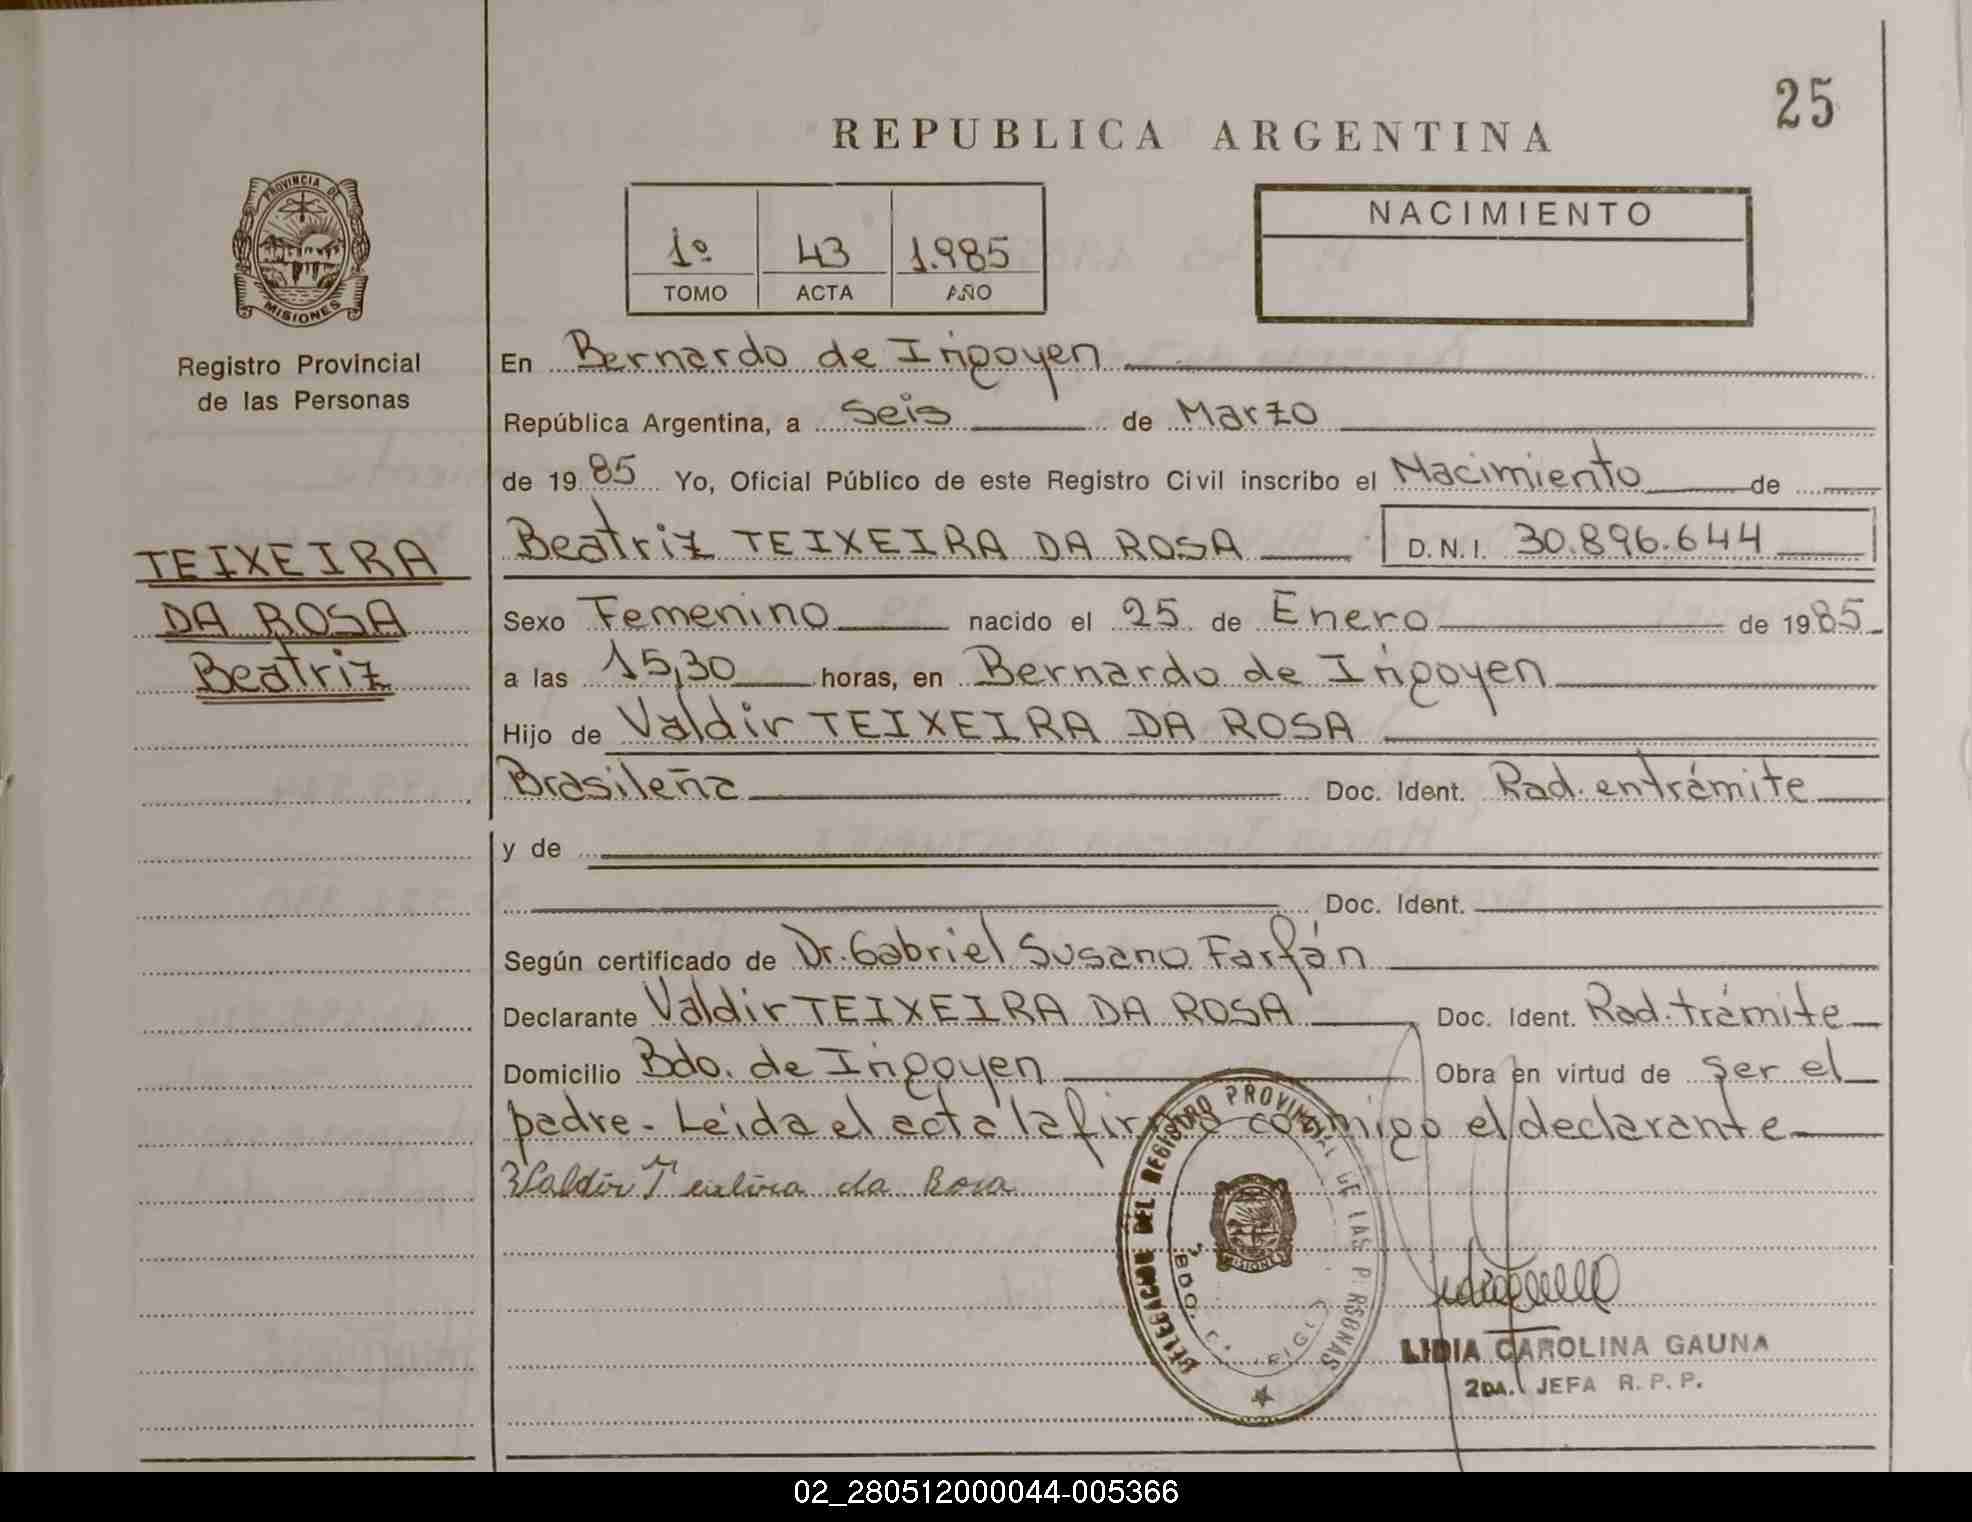 25
REPUBLICA ARGENTINA
PROVINCIA DE
MISIONES
Registro Provincial
de las Personas
1º 43 1.985
TOMO ACTA AÑO
NACIMIENTO
En Bernardo de Irigoyen
República Argentina, a Seis de Marzo
de 1985 Yo, Oficial Público de este Registro Civil inscribo el Nacimiento de
Beatriz TEIXEIRA DA ROSA D.N.I. 30.896.644
TEIXEIRA
DA ROSA
Beatriz
Sexo Femenino nacido el 25 de Enero de 1985
a las 15,30 horas, en Bernardo de Irigoyen
Hijo de Valdir TEIXEIRA DA ROSA
Brasileña Doc. Ident. Rad. entrámite
y de
Doc. Ident.
Según certificado de Dr. Gabriel Susano Farfán
Declarante Valdir TEIXEIRA DA ROSA Doc. Ident. Rad. trámite
Domicilio Bdo. de Irigoyen Obra en virtud de ser el
padre - Leída el acta la firma conmigo el declarante
Valdir Teixeira da Rosa
DELEGACION DEL REGISTRO PROVINCIAL DE LAS PERSONAS
BDO.
MISIONES
LIDIA CAROLINA GAUNA
2DA. JEFA R.P.P.
02_280512000044-005366